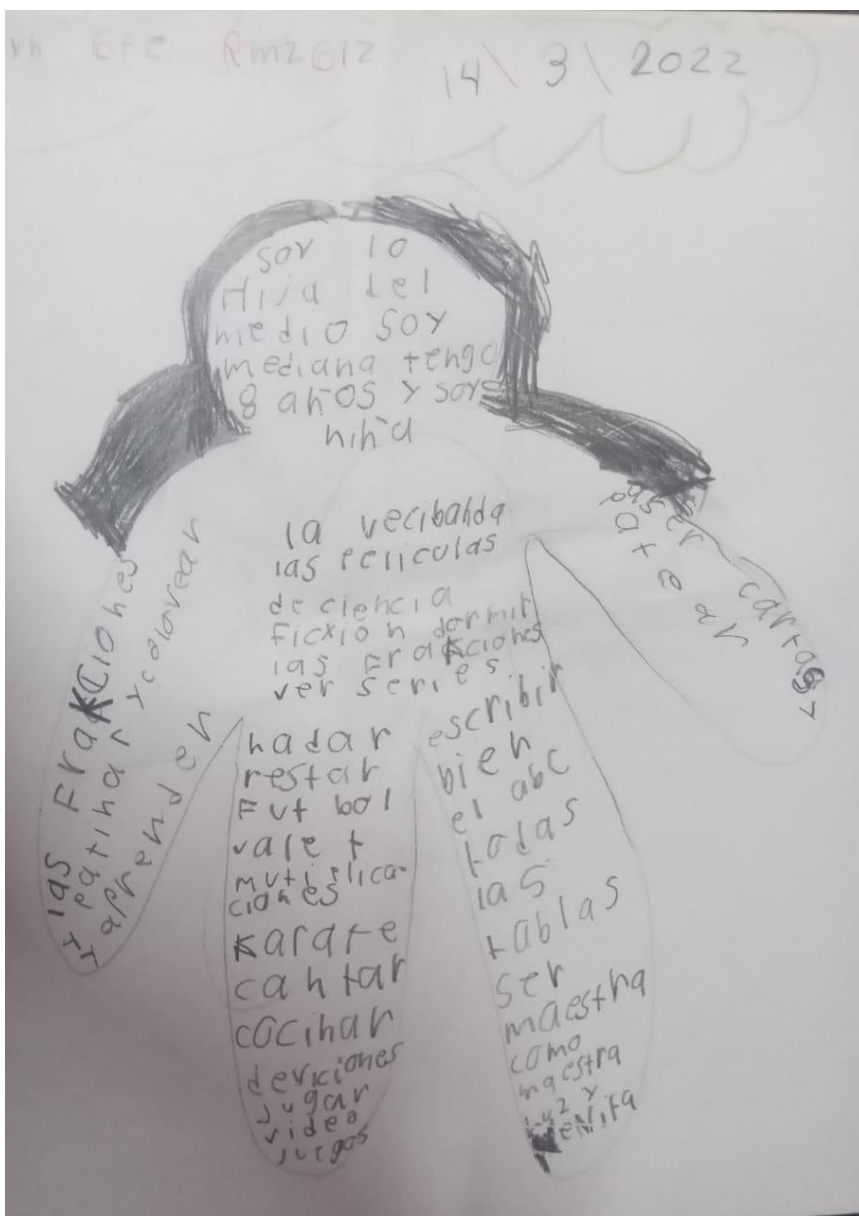 14\3\2022
soy la
Hija del
medio soy
mediana tengo
8 años y soy
niña
la vecibanda
las peliculas
de ciencia
ficxion dormir
las FraKciones
ver series
las FraKCiones
patinar y colorear
aprender
aser cartas y
patear
nadar
restar
Fut bol
valet
mutiplica-
ciones
Karate
cantar
cocinar
deviciones
jugar
video
juegos
escribir
bien
el abc
todas
las
tablas
ser
maestra
como
maestra
luz y